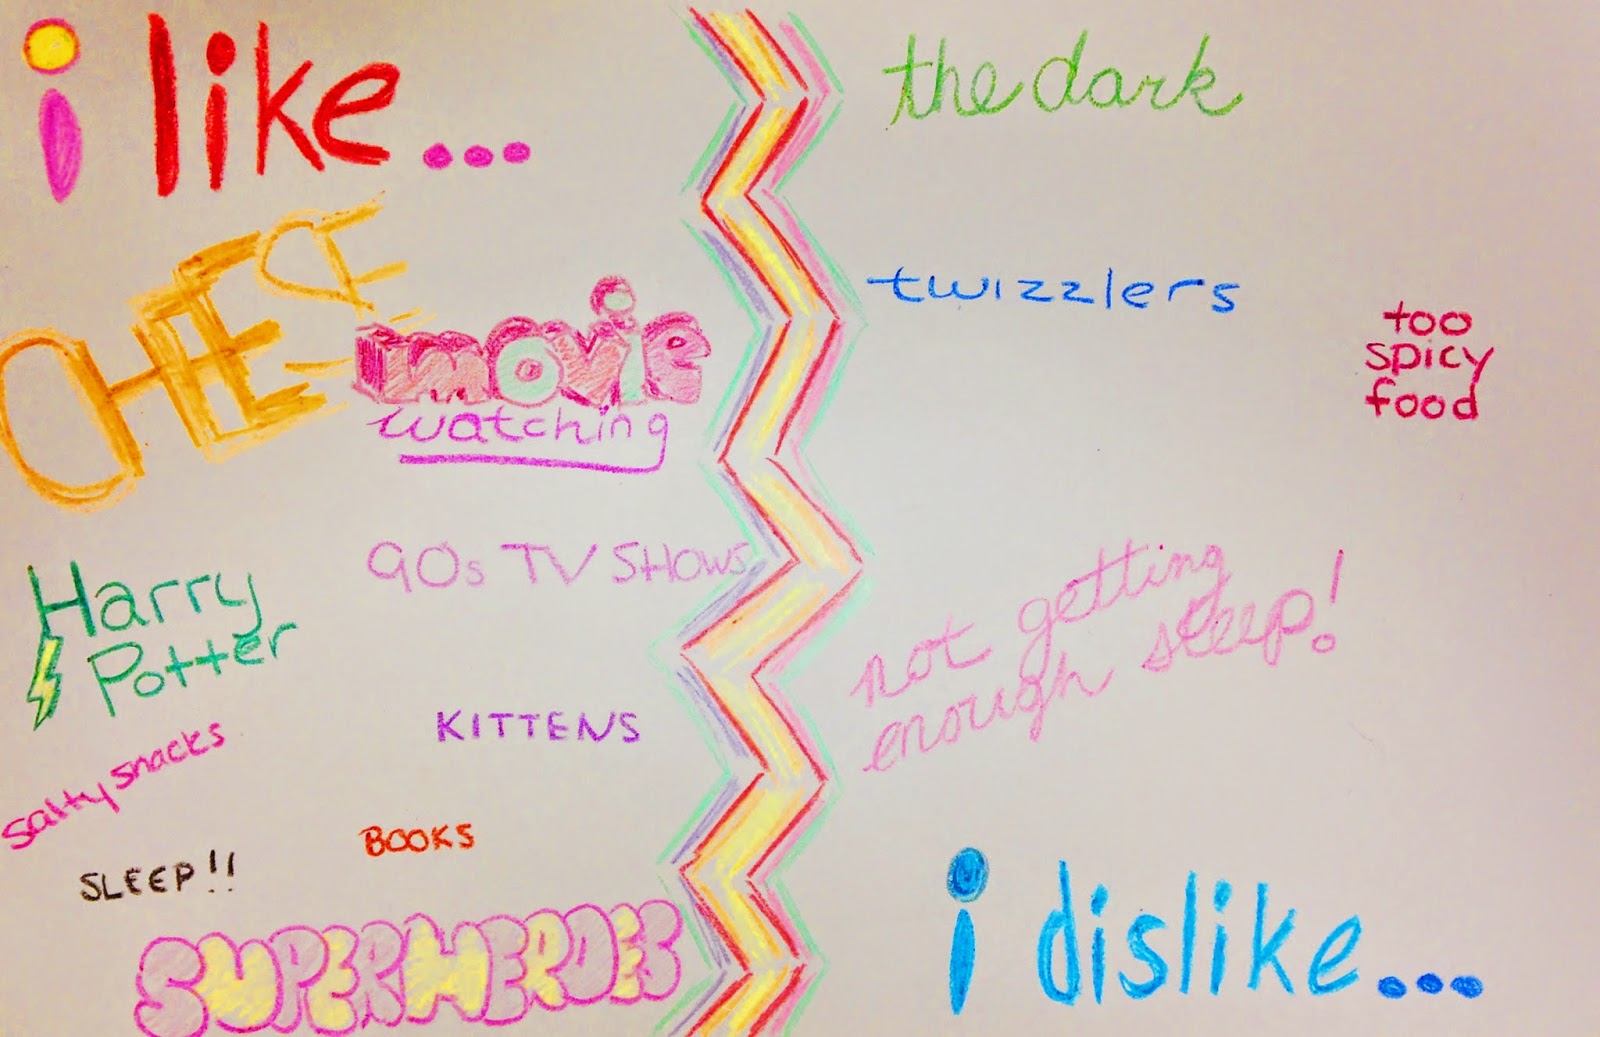 i like...
CHEESE
movie
watching
90s TV SHOWS
Harry
Potter
KITTENS
salty snacks
BOOKS
SLEEP!!
SUPERHEROES
the dark
twizzlers
too
spicy
food
not getting
enough sleep!
i dislike...